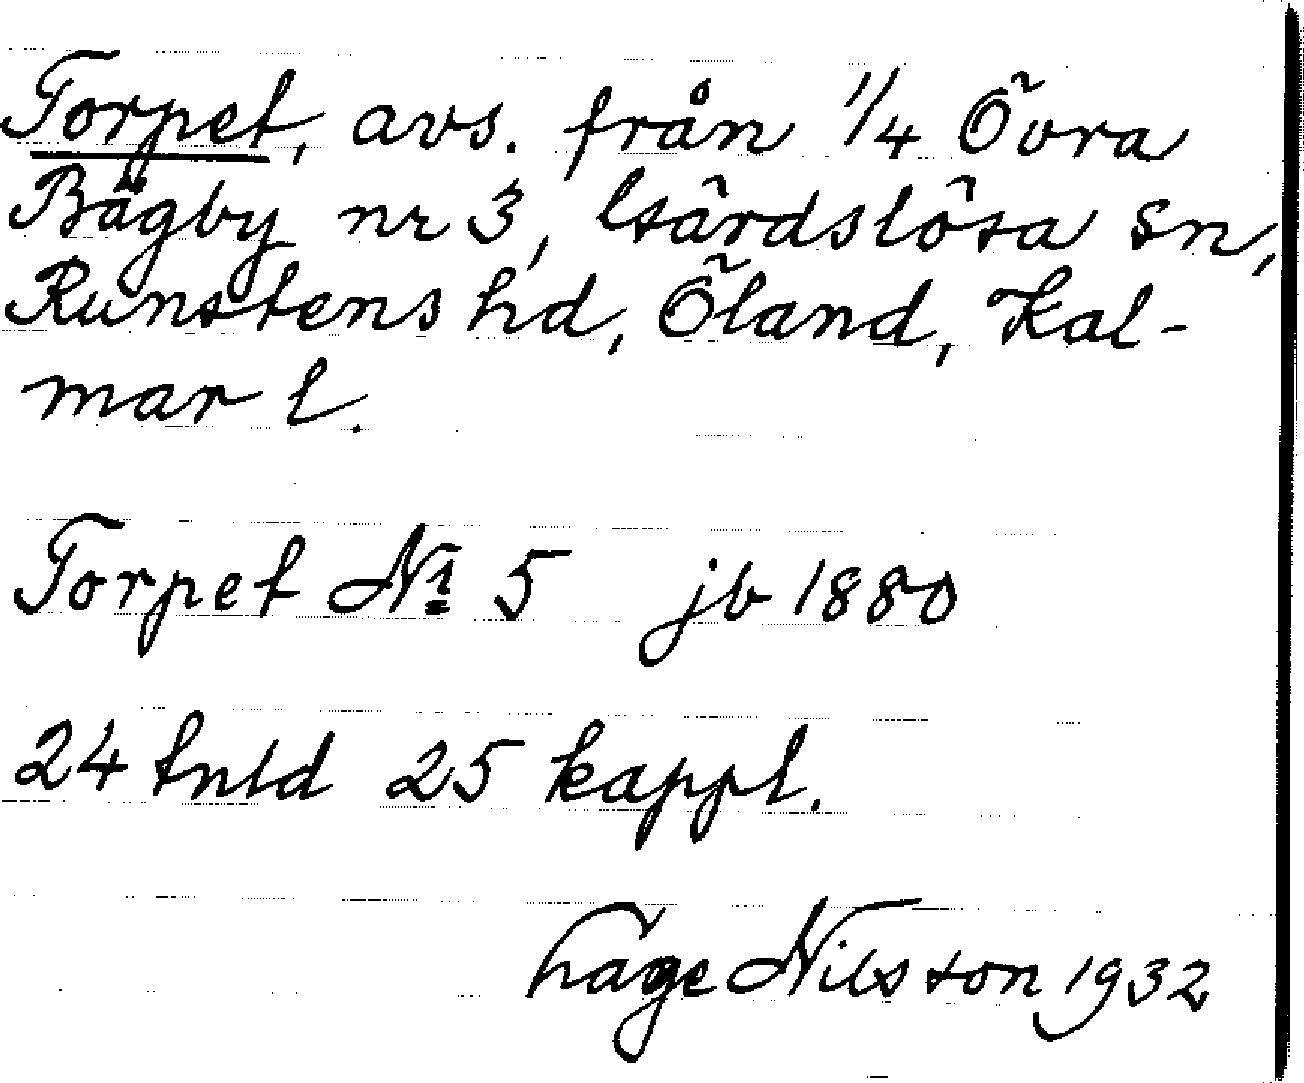 Torpet, avs. från 1/4 Övra
Bägby nr 3, Gärdslösa sn,
Runstens hd, Öland, Kal-
mar l.
Torpet No 5 jb 1880
24 tnld 25 kappl.
Nilsson 1932